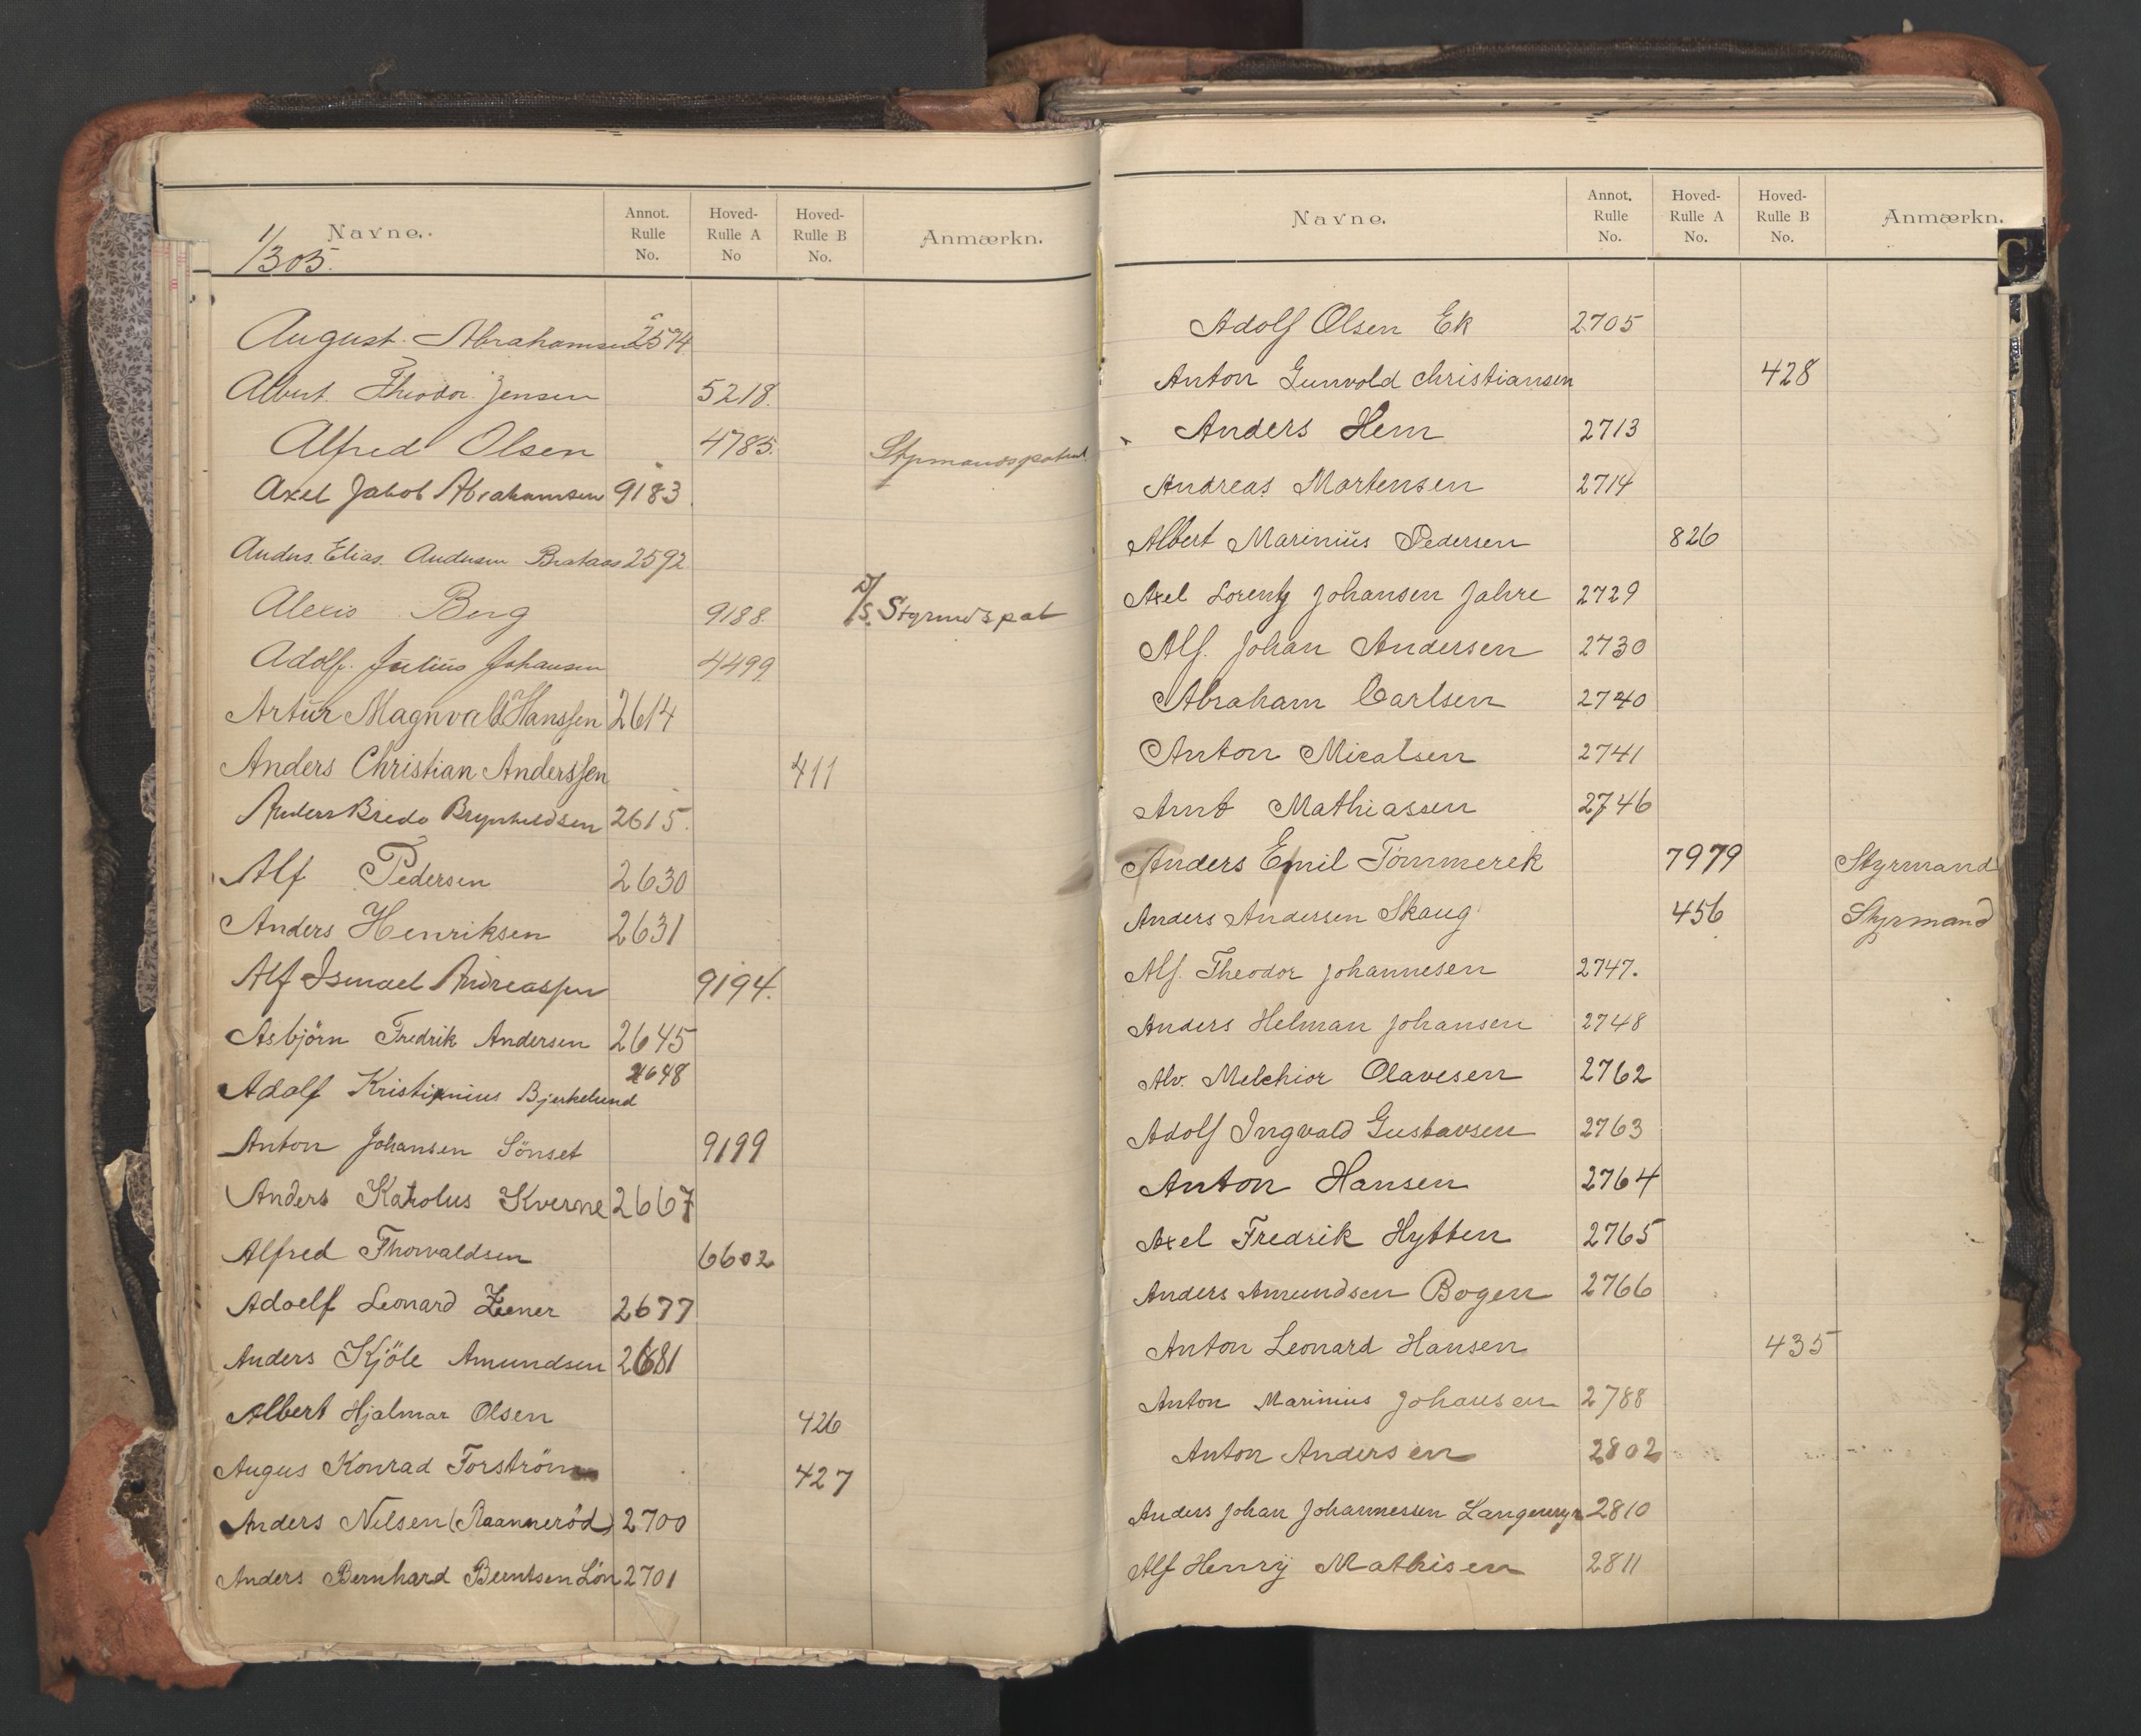 Navne.
Annot. Rulle No.
Hoved-Rulle A No
Hoved-Rulle B No.
Anmærkn.
1/305.
August. Abrahamsen 2574
Albert. Theodor. Jensen 5218.
Alfred Olsen 4785. Styrmandspatent.
Axel Jakob Abrahamsen 9183
Anders. Elias. Andersen Brataas 2592
Alexis Berg 9188. D/S. Styrmdspat
Adolf. Julius Johansen 4499
Artur Magnvald Hanssen 2614
Anders Christian Anderssen 411
Anders Bredo Brynhildsen 2615.
Alf Pedersen 2630
Anders Henriksen 2631
Alf Ismael Andreassen 9194.
Asbjörn Fredrik Andersen 2645
Adolf Kristianius Bjerkelund 2648
Anton Johansen Sönset 9199
Anders Karolus Kverne 2667
Alfred Thorvaldsen 6602
Adoelf Leonard Zener 2677
Anders Kjöle Amundsen 2681
Albert Hjalmar Olsen 426
Augus Konrad Forström 427
Anders Nilsen (Raanneröd) 2700
Anders Bernhard Berntsen Lön 2701
Navne.
Annot. Rulle No.
Hoved-Rulle A No.
Hoved-Rulle B No.
Anmærkn.
C
Adolf Olsen Ek 2705
Anton Gunvold Christiansen 428
Anders Hem 2713
Andreas Mortensen 2714
Albert Marinius Pedersen 826
Axel Lorentz Johansen Jahre 2729
Alf. Johan Andersen 2730
Abraham Carlsen 2740
Anton Micalsen 2741
Arnt Mathiassen 2746
Anders Emil Tömmerek 7979 Styrmand
Anders Andersen Skaug 456 Styrmand
Alf. Theodor Johannesen 2747.
Anders Helman Johansen 2748
Alv. Melchior Olavesen 2762
Adolf Ingvald Gustavsen 2763
Anton Hansen 2764
Axel Fredrik Hytten 2765
Anders Amundsen Bogen 2766
Anton Leonard Hansen 435
Anton Marinius Johansen 2788
Anton Andersen 2802
Anders Johan Johannessen 2810
Alf Henrij Mathisen 2811